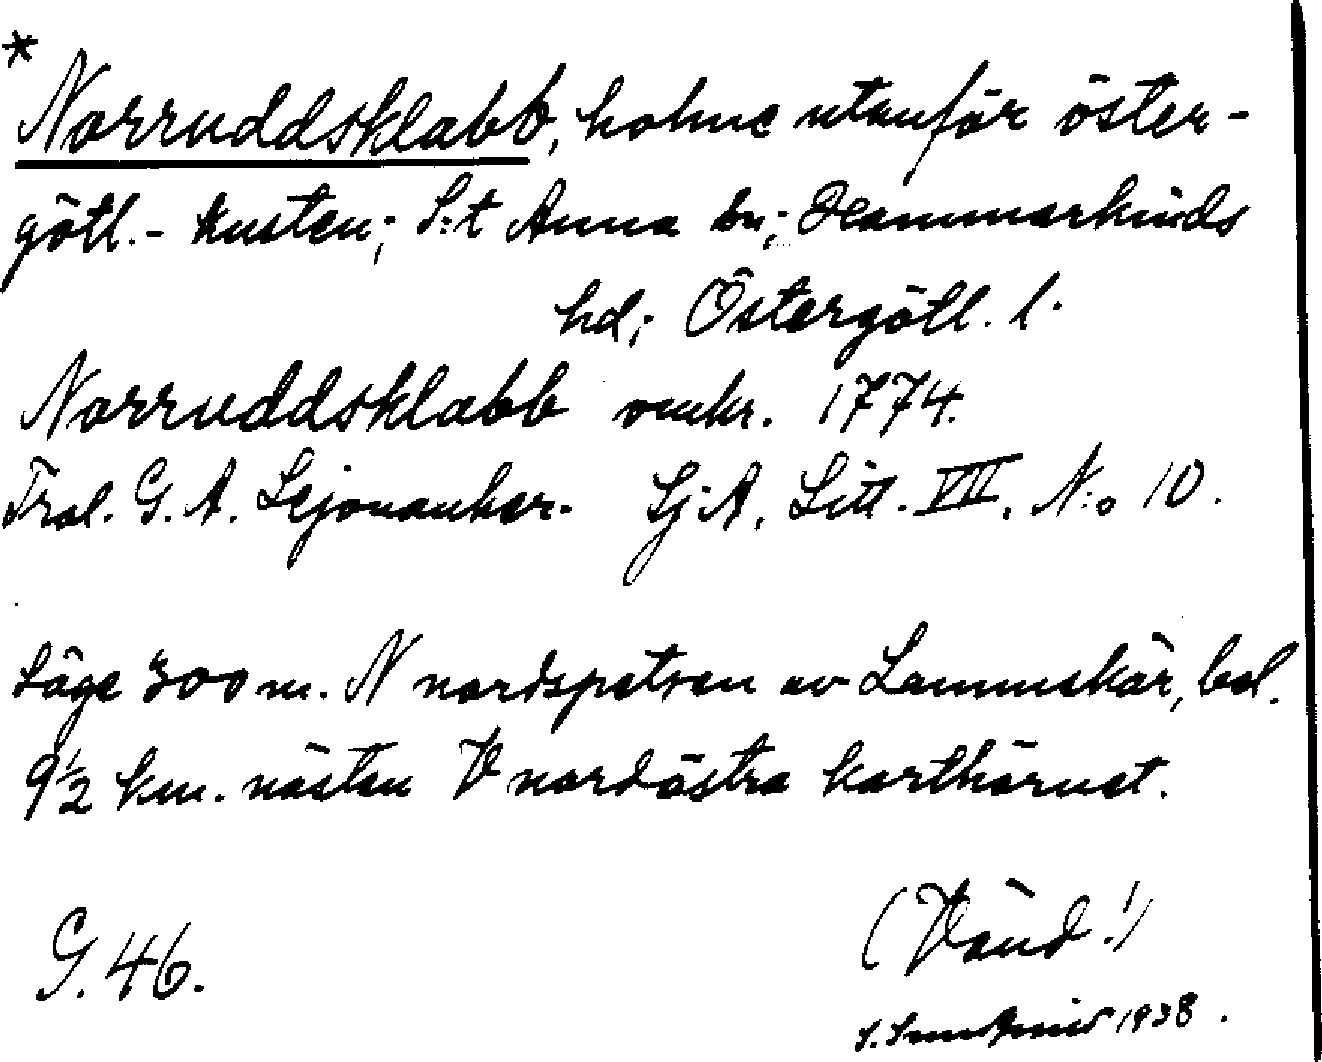 * Norruddsklabb, holme utanför öster-
götl.- kusten; S:t Anna sn; Hammarkinds
hd; Östergötl. l.
Norruddsklabb omkr. 1774.
Trol. G. A. Lejonanker. Sj.A. Litt. VII. N:o 10.
Läge 300 m. N nordspetsen av Lammskär, bel.
9 1/2 km. nästan V nordöstra karthörnet.
G. 46.
(Vänd!)
1938.